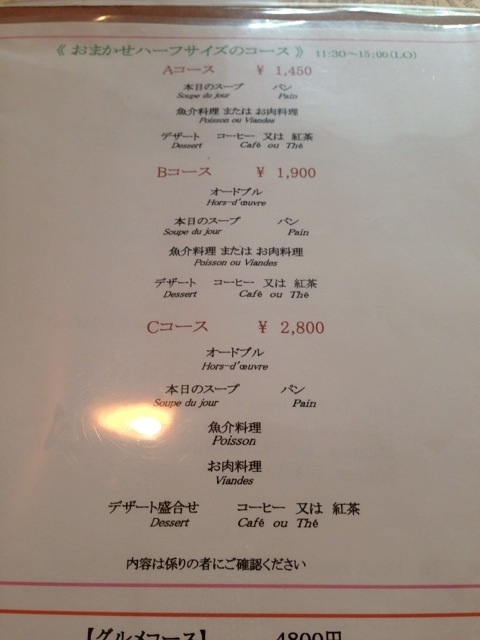 《 おまかせハーフサイズのコース 》 11:30～15:00(L.O)
Aコース ￥ 1,450
本日のスープ パン
Soupe du jour Pain
魚介料理 または お肉料理
Poisson ou Viandes
デザート コーヒー 又は 紅茶
Dessert Café ou Thé
Bコース ￥ 1,900
オードブル
Hors-d'œuvre
本日のスープ パン
Soupe du jour Pain
魚介料理 または お肉料理
Poisson ou Viandes
デザート コーヒー 又は 紅茶
Dessert Café ou Thé
Cコース ￥ 2,800
オードブル
Hors-d'œuvre
本日のスープ パン
Soupe du jour Pain
魚介料理
Poisson
お肉料理
Viandes
デザート盛合せ コーヒー 又は 紅茶
Dessert Café ou Thé
内容は係りの者にご確認ください
【グルメコース】 4800円